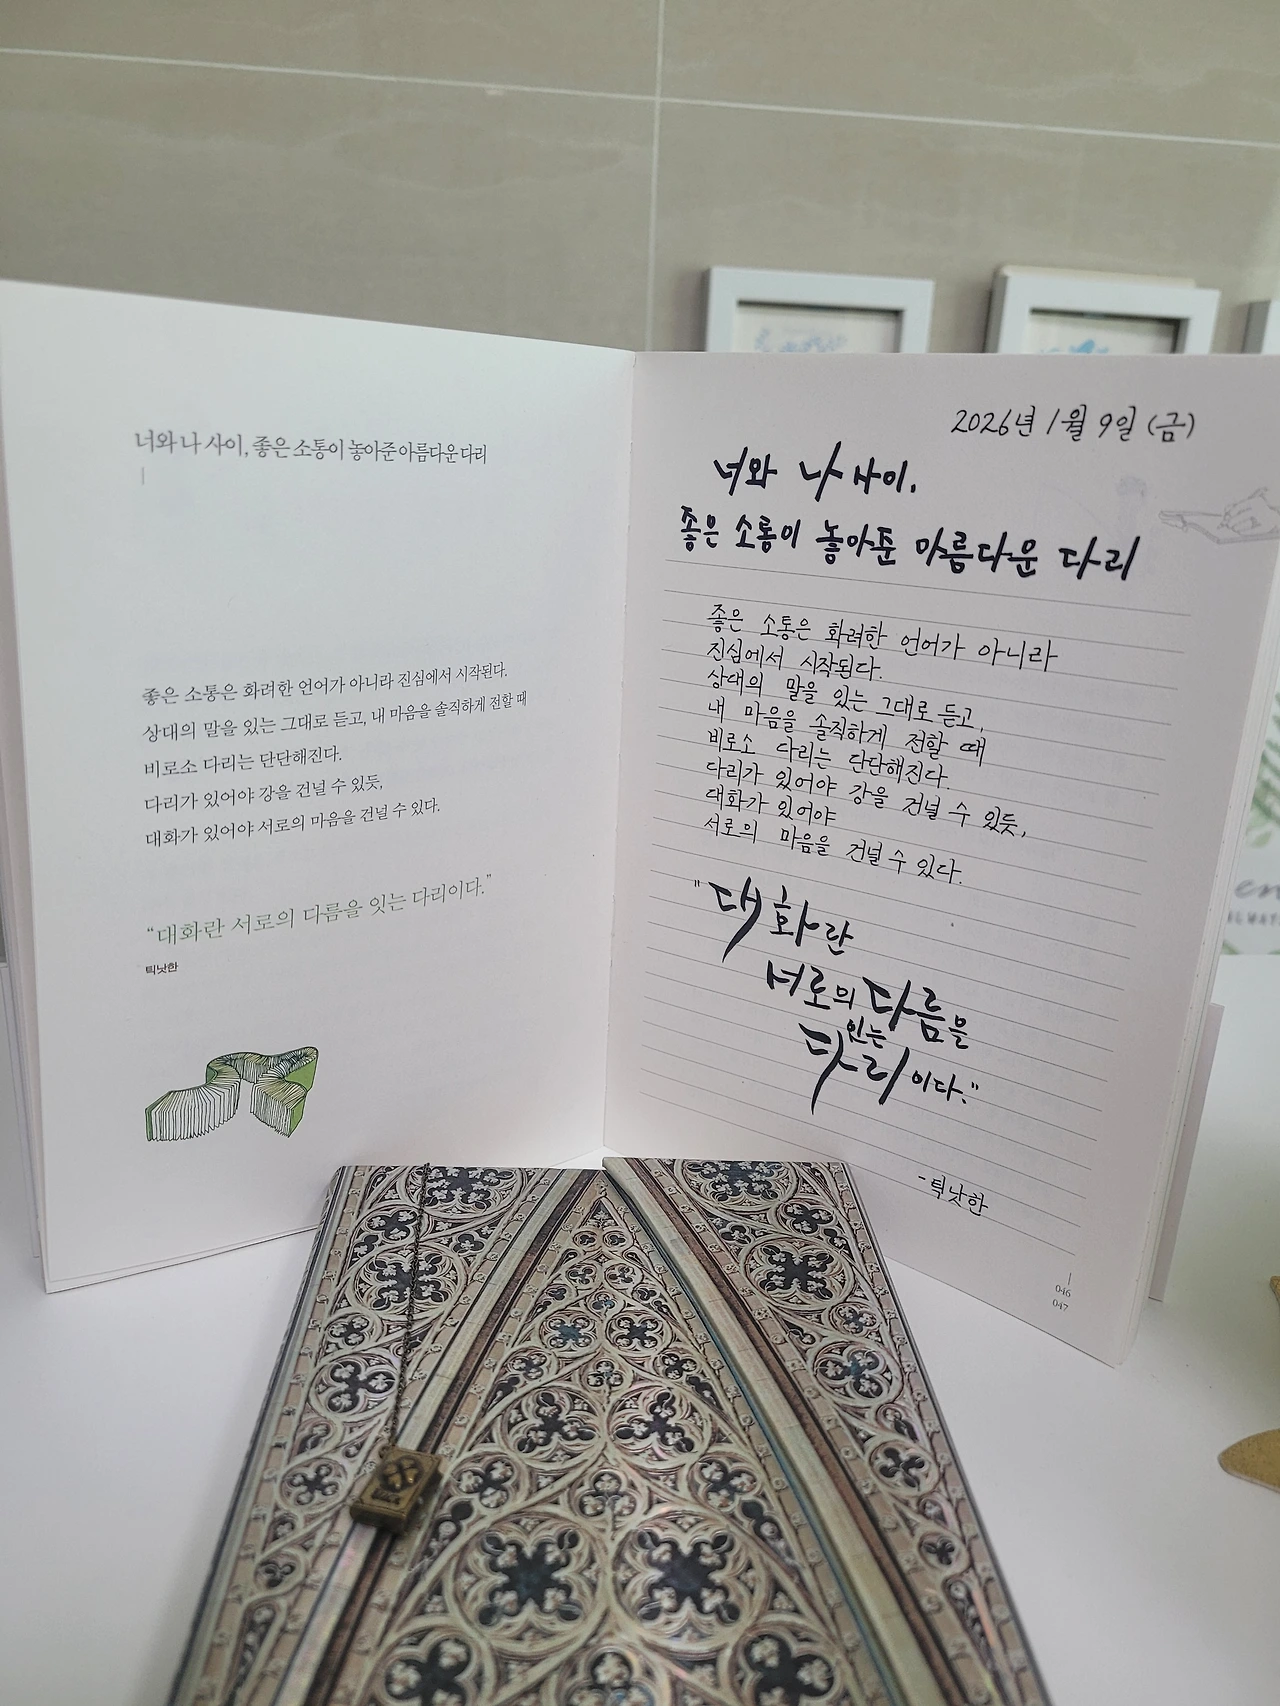 너와 나 사이, 좋은 소통이 놓아준 아름다운 다리
좋은 소통은 화려한 언어가 아니라 진심에서 시작된다.
상대의 말을 있는 그대로 듣고, 내 마음을 솔직하게 전할 때
비로소 다리는 단단해진다.
다리가 있어야 강을 건널 수 있듯,
대화가 있어야 서로의 마음을 건널 수 있다.
“대화란 서로의 다름을 잇는 다리이다.”
틱낫한
2026년 1월 9일 (금)
너와 나 사이,
좋은 소통이 놓아준 아름다운 다리
좋은 소통은 화려한 언어가 아니라
진심에서 시작된다.
상대의 말을 있는 그대로 듣고,
내 마음을 솔직하게 전할 때
비로소 다리는 단단해진다.
다리가 있어야 강을 건널 수 있듯,
대화가 있어야
서로의 마음을 건널 수 있다.
"대화란
서로의 다름을
잇는
다리이다."
- 틱낫한
046
047